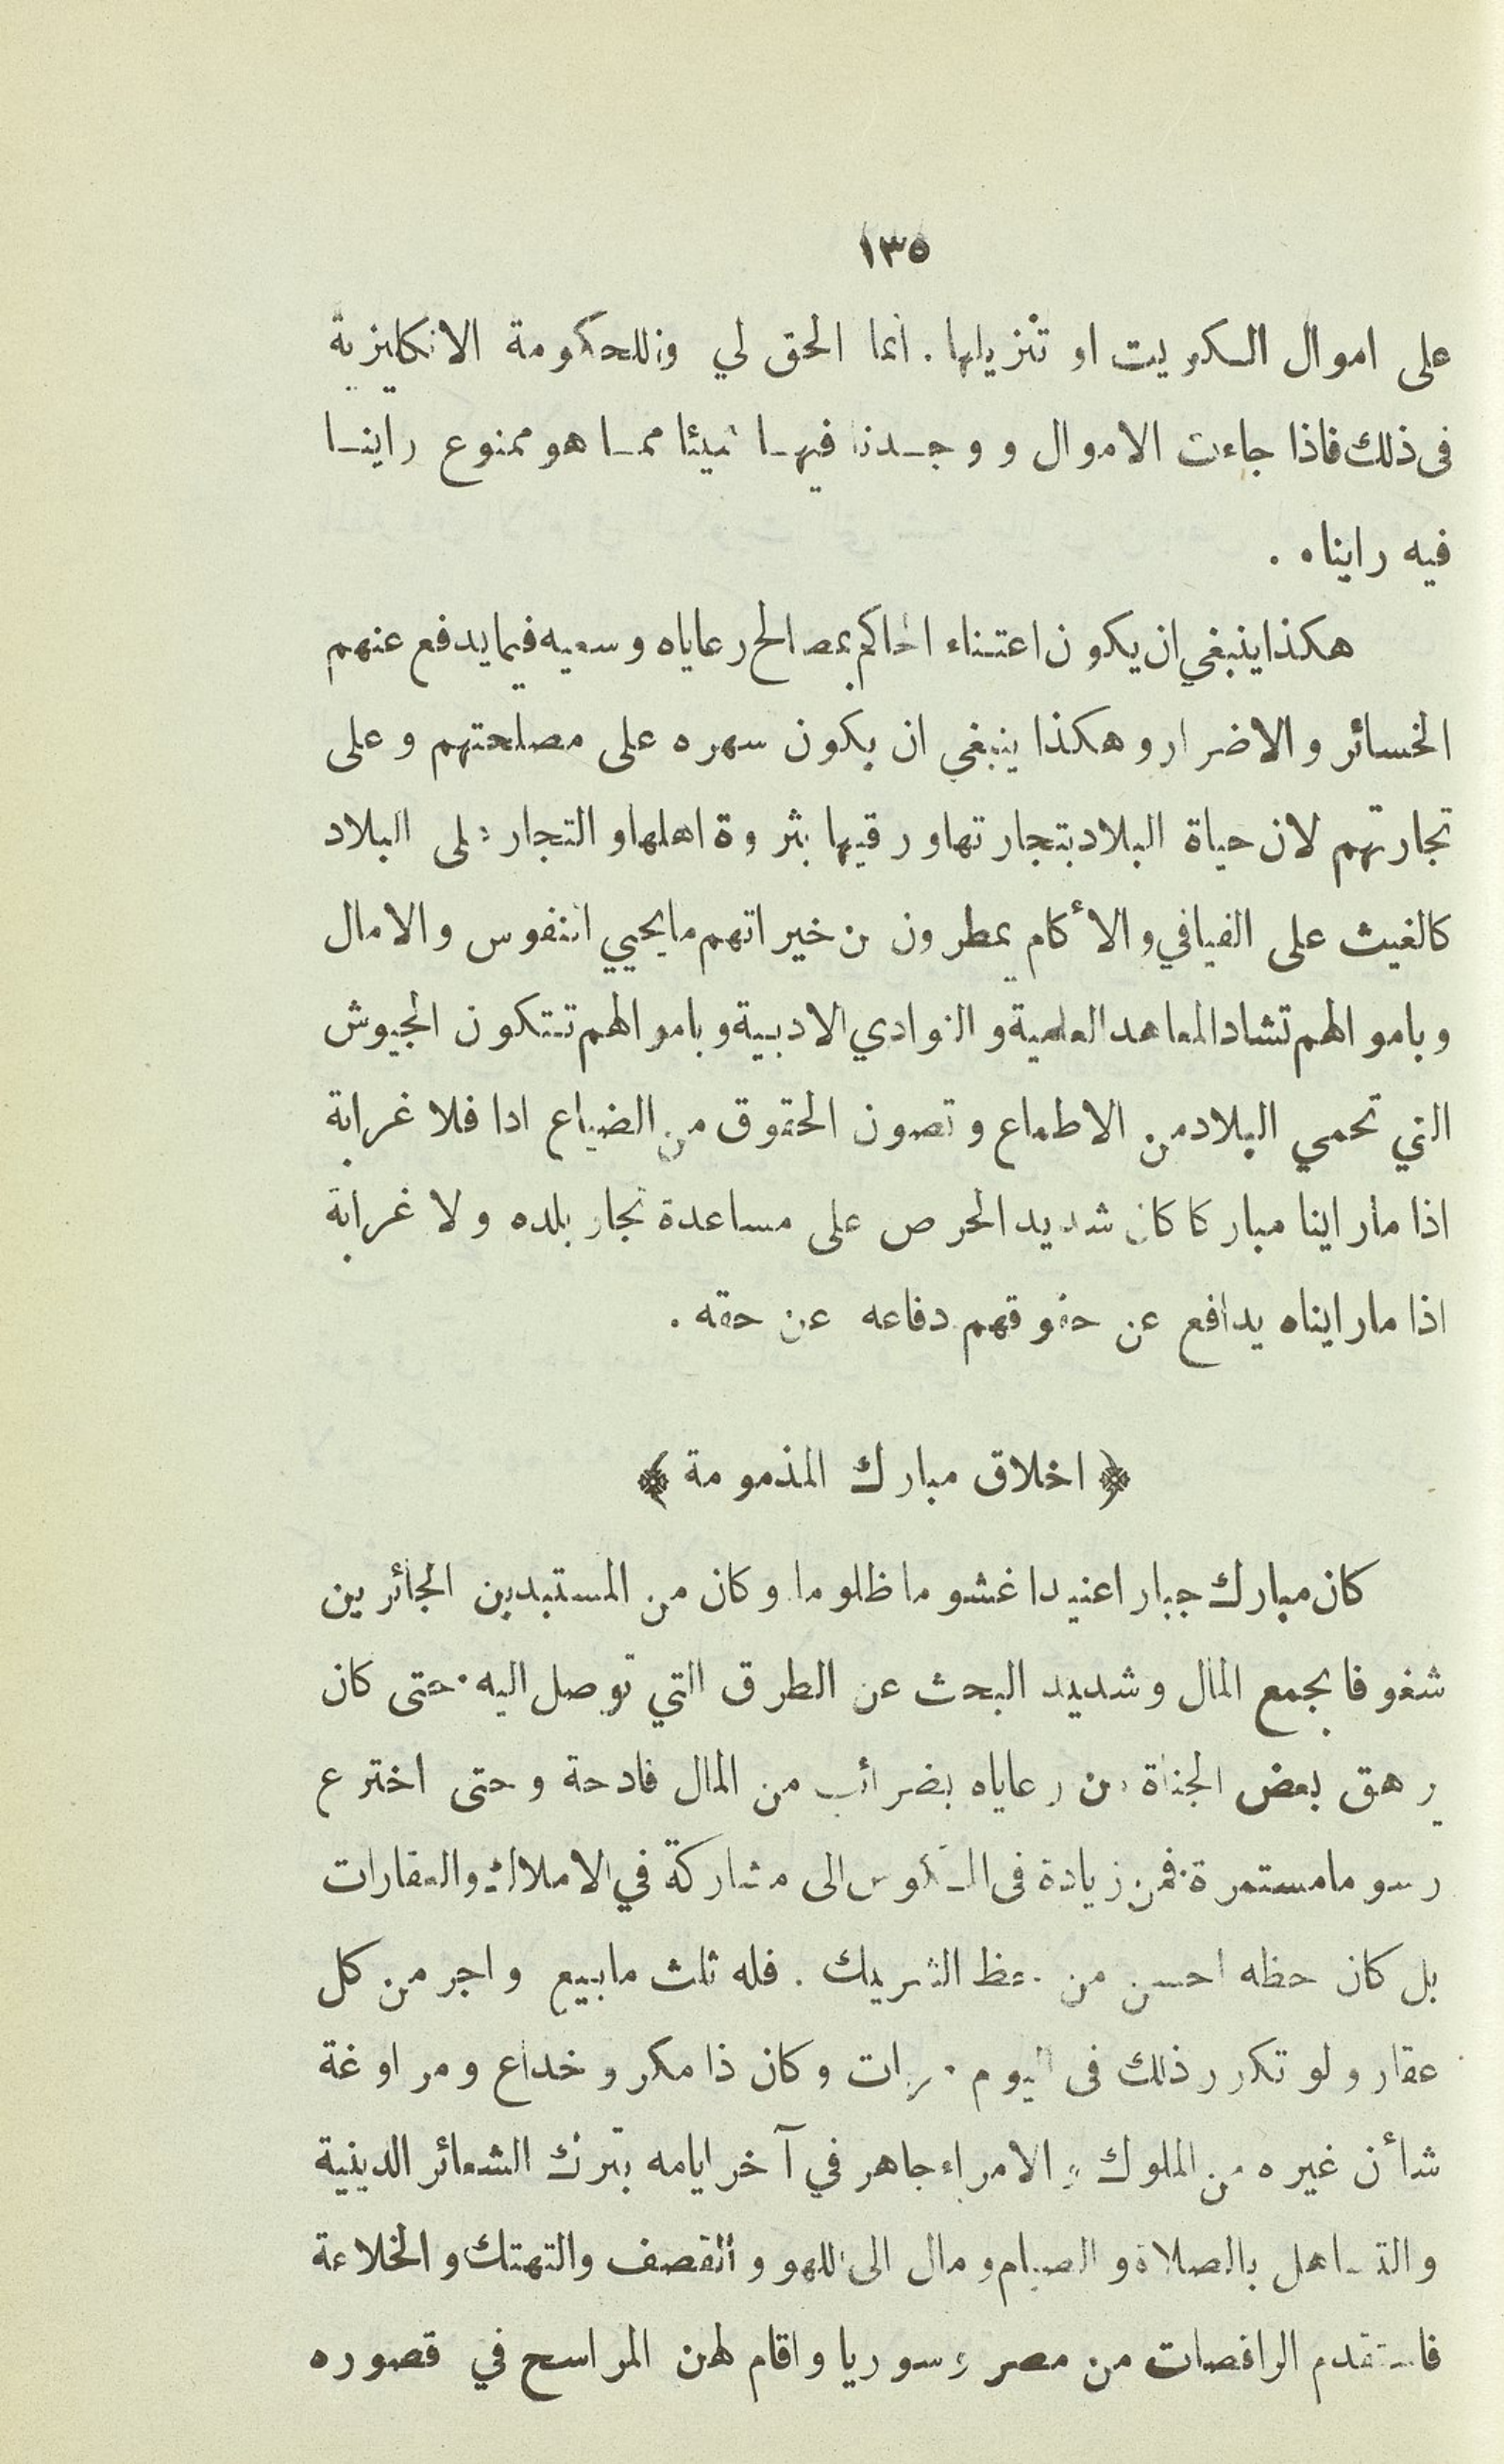 ١٣٥
على اموال الكويت او تنزيلها. انما الحق لي وللحكومة الانكليزية
فى ذلك فاذا جاءت الاموال ووجدنا فيها شيئا مما هو ممنوع راينا
فيه رايناه .
هكذا ينبغي ان يكون اعتناء الحاكم بمصالح رعاياه وسعيه فيما يدفع عنهم
الخسائر والاضرار وهكذا ينبغي ان يكون سهره على مصلحتهم وعلى
تجارتهم لان حياة البلاد بتجارتها ورقيها بثروة اهلها والتجار على البلاد
كالغيث على الفيافي والأكام يمطرون من خيراتهم ما يحيي النفوس والامال
وباموالهم تشاد المعاهد العلمية والنوادي الادبية وباموالهم تتكون الجيوش
التي تحمي البلاد من الاطماع وتصون الحقوق من الضياع اذا فلا غرابة
اذا ما راينا مباركا كان شديد الحرص على مساعدة تجار بلده ولا غرابة
اذا ما رايناه يدافع عن حقوقهم دفاعه عن حقه .
﴿ اخلاق مبارك المذمومة ﴾
كان مبارك جبارا عنيدا غشوما ظلوما وكان من المستبدين الجائرين
شغوفا بجمع المال وشديد البحث عن الطرق التي توصل اليه حتى كان
يرهق بعض الجناة من رعاياه بضرائب من المال فادحة وحتى اخترع
رسوما مستمرة فمن زيادة فى المكوس الى مشاركة في الاملاك والعقارات
بل كان حظه احسن من حظ الشريك . فله ثلث ما بيع واجر من كل
عقار ولو تكرر ذلك فى اليوم مرات وكان ذا مكر وخداع ومراوغة
شأن غيره من الملوك والامراء جاهر في آخر ايامه بترك الشعائر الدينية
والتساهل بالصلاة والصيام ومال الى اللهو والقصف والتهتك والخلاعة
فاستقدم الراقصات من مصر وسوريا واقام لهن المراسح في قصوره